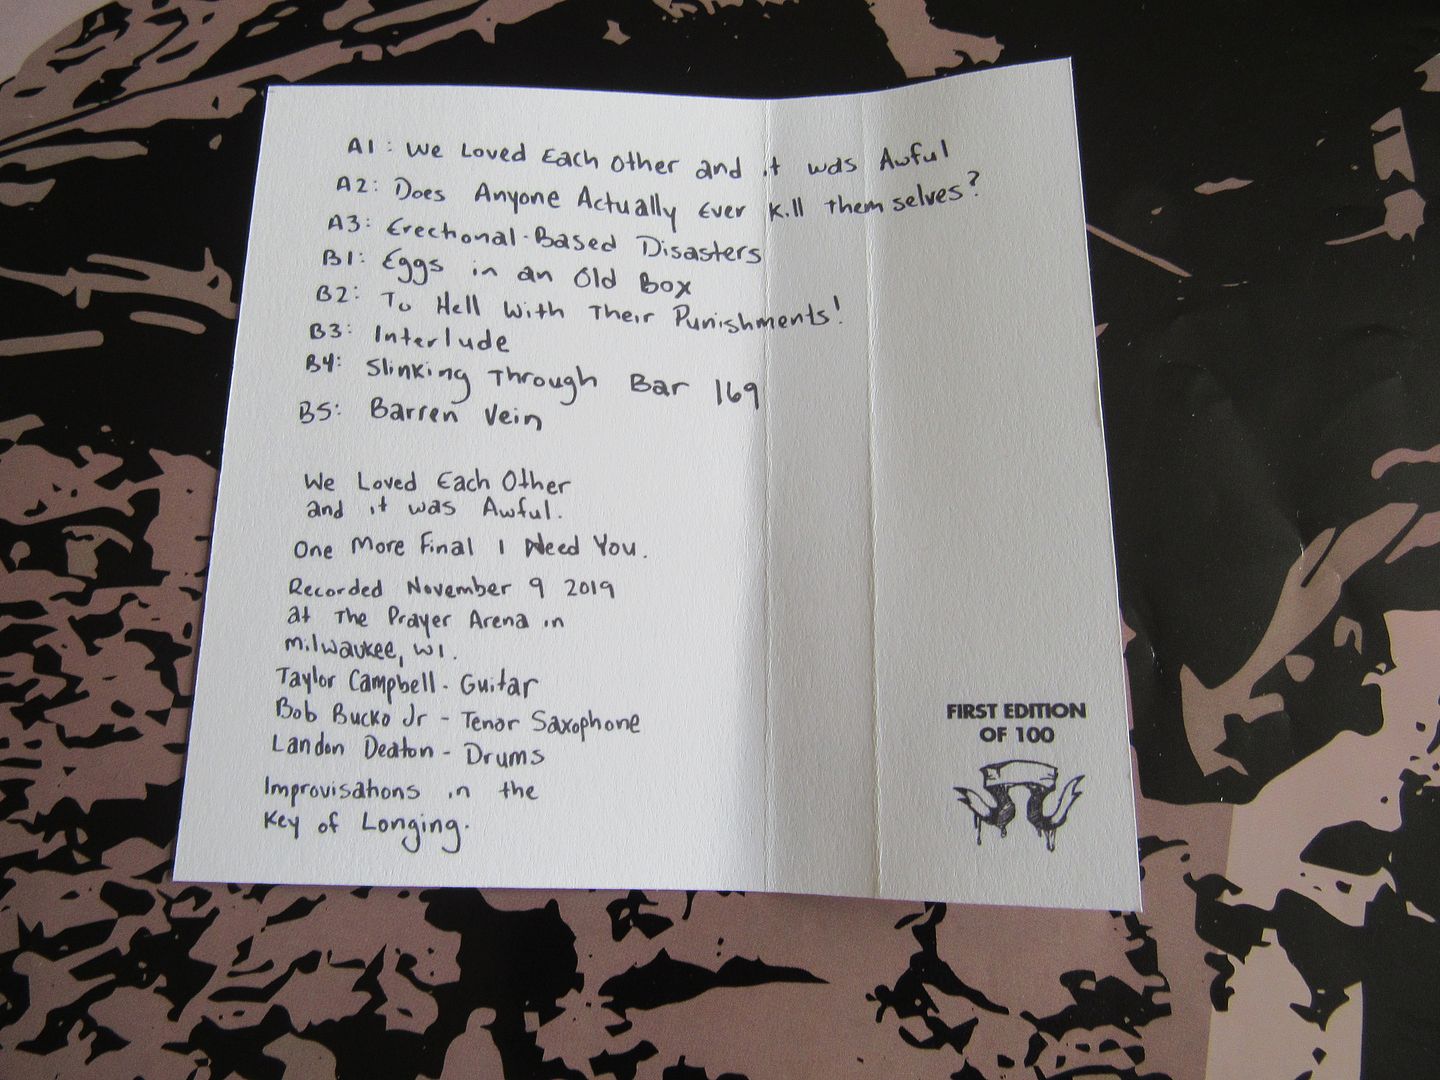 A1: We Loved Each Other and it was Awful
A2: Does Anyone Actually Ever Kill Themselves?
A3: Erectional-Based Disasters
B1: Eggs in an Old Box
B2: To Hell With Their Punishments!
B3: Interlude
B4: Slinking Through Bar 169
B5: Barren Vein
We Loved Each Other
and it was Awful.
One More Final I Need You.
Recorded November 9 2019
at The Prayer Arena in
Milwaukee, WI.
Taylor Campbell - Guitar
Bob Bucko Jr - Tenor Saxophone
Landon Deaton - Drums
Improvisations in the
Key of Longing.
FIRST EDITION
OF 100